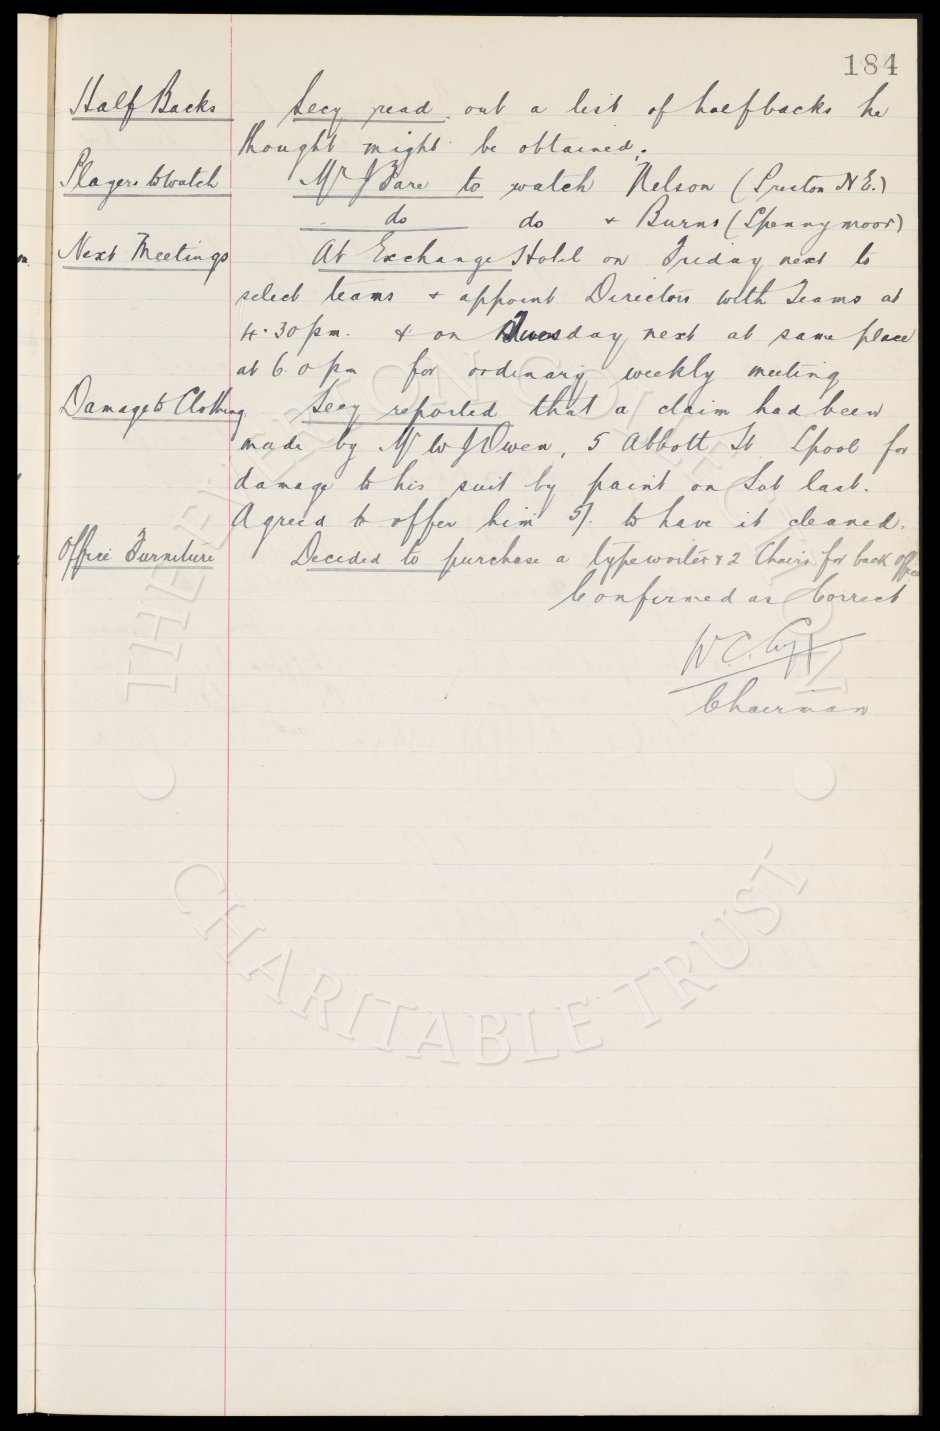 184
Half Backs Secy read out a list of halfbacks he
thought might be obtained.
Players to watch Mr J Fare to watch Nelson (Preston N E.)
do do & Burns (Spennymoor)
Next Meetings At Exchange Hotel on Friday next to
select teams & appoint Directors with Teams at
4.30 pm. & on Tuesday next at same place
at 6.0 pm for ordinary weekly meeting
Damage to Clothing Secy reported that a claim had been
made by Mr W J Owen, 5 Abbott St Lpool for
damage to his suit by paint on Sat last.
Agreed to offer him 5/- to have it cleaned.
Office Furniture Decided to purchase a typewriter & 2 Chairs for back office
Confirmed as Correct
W. C. Cuff
Chairman
THE EVERTON COLLECTION
CHARITABLE TRUST